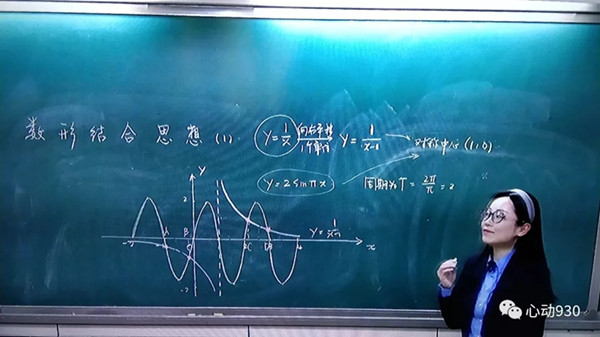 数形结合思想(1).
y=1/x 向右平移 1个单位 y=1/(x-1) 对称中心(1,0)
y=2sinπx 周期为T=2π/π=2
y
2
A B C D
y=1/(x-1)
x
-2
心动930